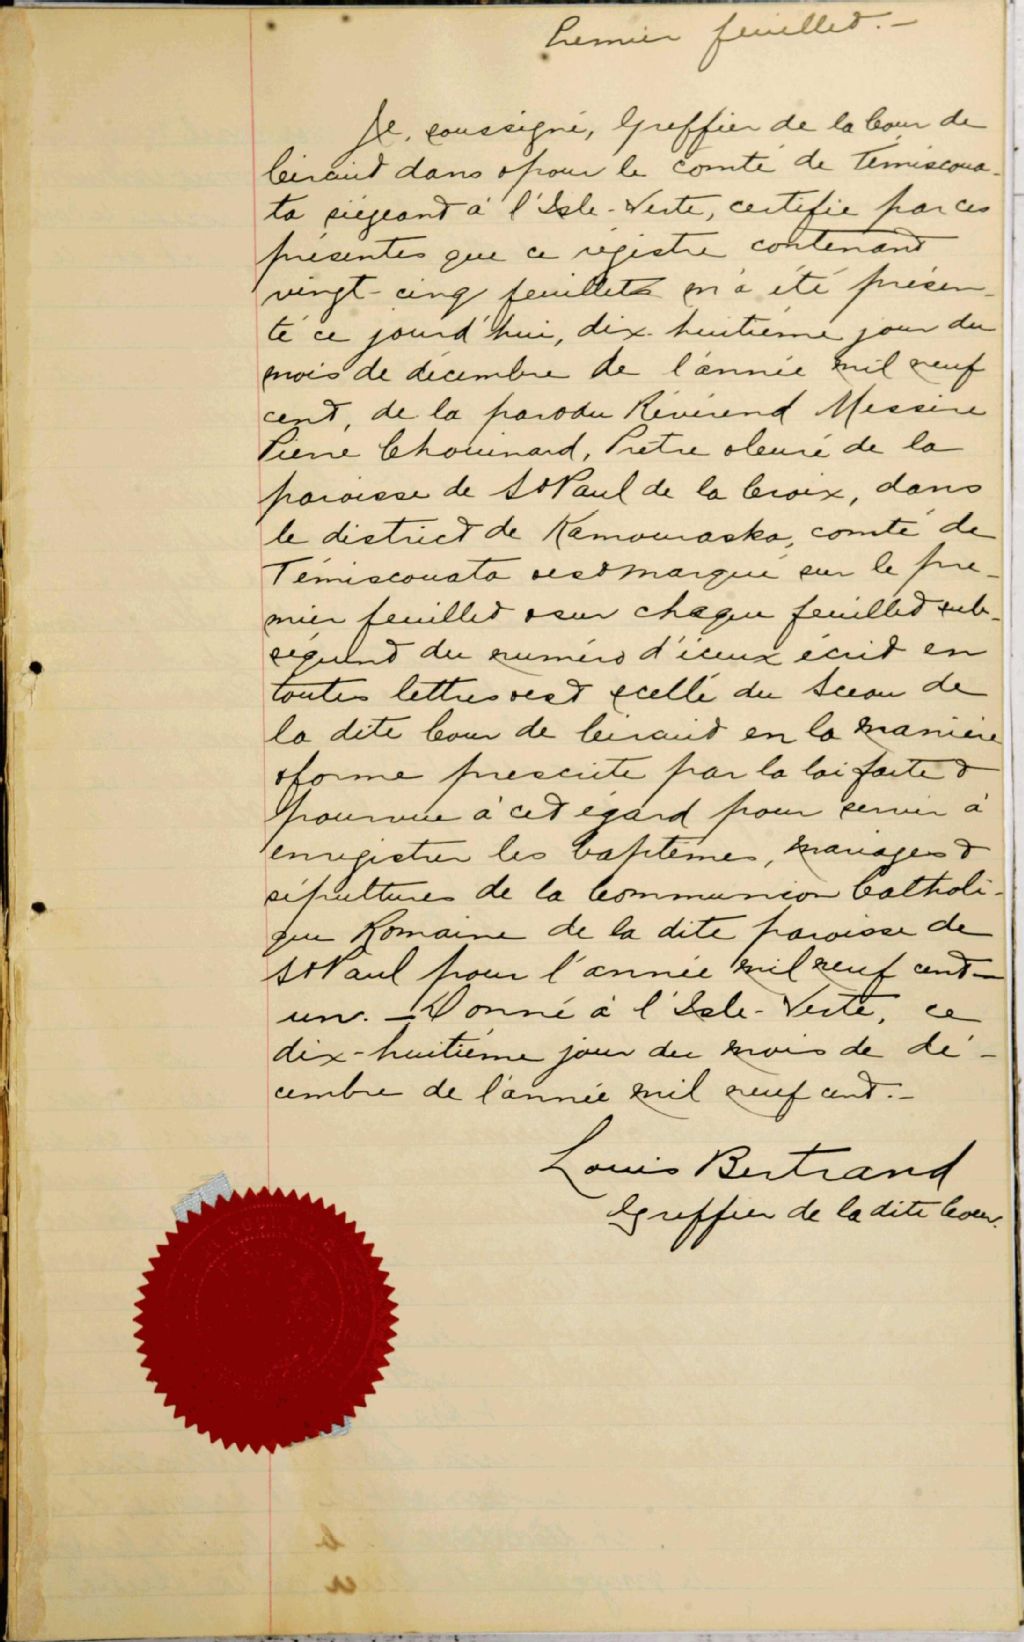 Premier feuillet.—
Je, soussigné, Greffier de la Cour de
Circuit dans & pour le comté de Témiscoua-
ta siégeant à l'Isle-Verte, certifie par ces
présentes que ce régistre contenant
vingt-cinq feuillets m'a été présen-
té ce jourd'hui, dix-huitième jour du
mois de décembre de l'année mil neuf
cent, de la part du Révérend Messire
Pierre Chouinard, Prêtre & Curé de la
paroisse de St Paul de la Croix, dans
le district de Kamouraska, comté de
Témiscouata & est marqué sur le pre-
mier feuillet & sur chaque feuillet sub-
séquent du numéro d'iceux écrit en
toutes lettres & est scellé du Sceau de
la dite Cour de Circuit en la manière
& forme prescrite par la loi faite &
pourvue à cet égard pour servir à
enregistrer les baptêmes, mariages &
sépultures de la Communion Catholi-
que Romaine de la dite paroisse de
St Paul pour l'année mil neuf cent—
un. — Donné à l'Isle-Verte, ce
dix-huitième jour du mois de dé-
cembre de l'année mil neuf cent.—
Louis Bertrand
Greffier de la dite Cour.